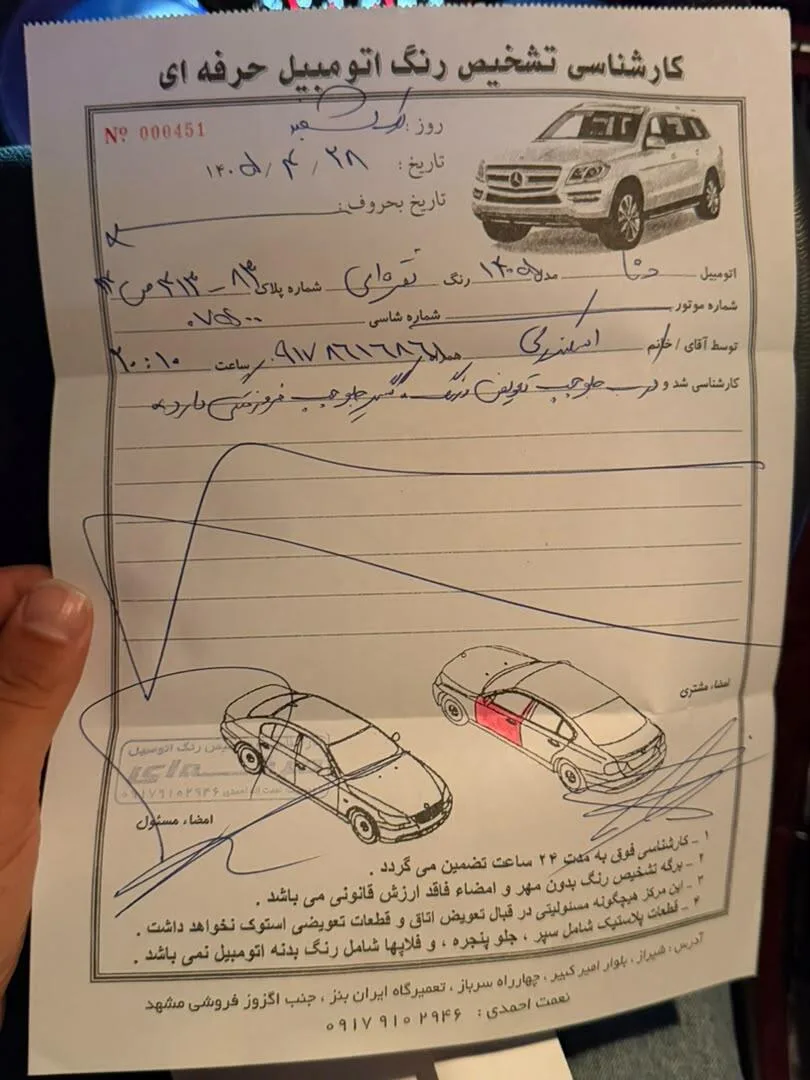 کارشناسی تشخیص رنگ اتومبیل حرفه ای
Nº 000451
روز:
تاریخ: ۱۴۰۵/۴/۲۸
تاریخ بحروف:
اتومبیل دنا مدل ۱۴۰۵ رنگ نقره‌ای شماره پلاک
شماره موتور شماره شاسی
توسط آقای / خانم همراه ۰۹۱۷۸۶۱۶۸۶۱ ساعت ۲۰:۱۰
کارشناسی شد و درب جلو چپ تعویض رنگ، گلگیر جلو چپ فرورفتگی دارد
امضاء مشتری
رنگ اتومبیل
۰۹۱۷۹۱۰۲۹۴۶
امضاء مسئول
۱ ـ کارشناسی فوق به مدت ۲۴ ساعت تضمین می گردد .
۲ ـ برگه تشخیص رنگ بدون مهر و امضاء فاقد ارزش قانونی می باشد .
۳ ـ این مرکز هیچگونه مسئولیتی در قبال تعویض اتاق و قطعات تعویضی استوک نخواهد داشت .
۴ ـ قطعات پلاستیک شامل سپر ، جلو پنجره ، و فلاپها شامل رنگ بدنه اتومبیل نمی باشد .
آدرس : شیراز ، بلوار امیر کبیر ، چهارراه سرباز ، تعمیرگاه ایران بنز ، جنب اگزوز فروشی مشهد
نعمت احمدی : ۰۹۱۷۹۱۰۲۹۴۶